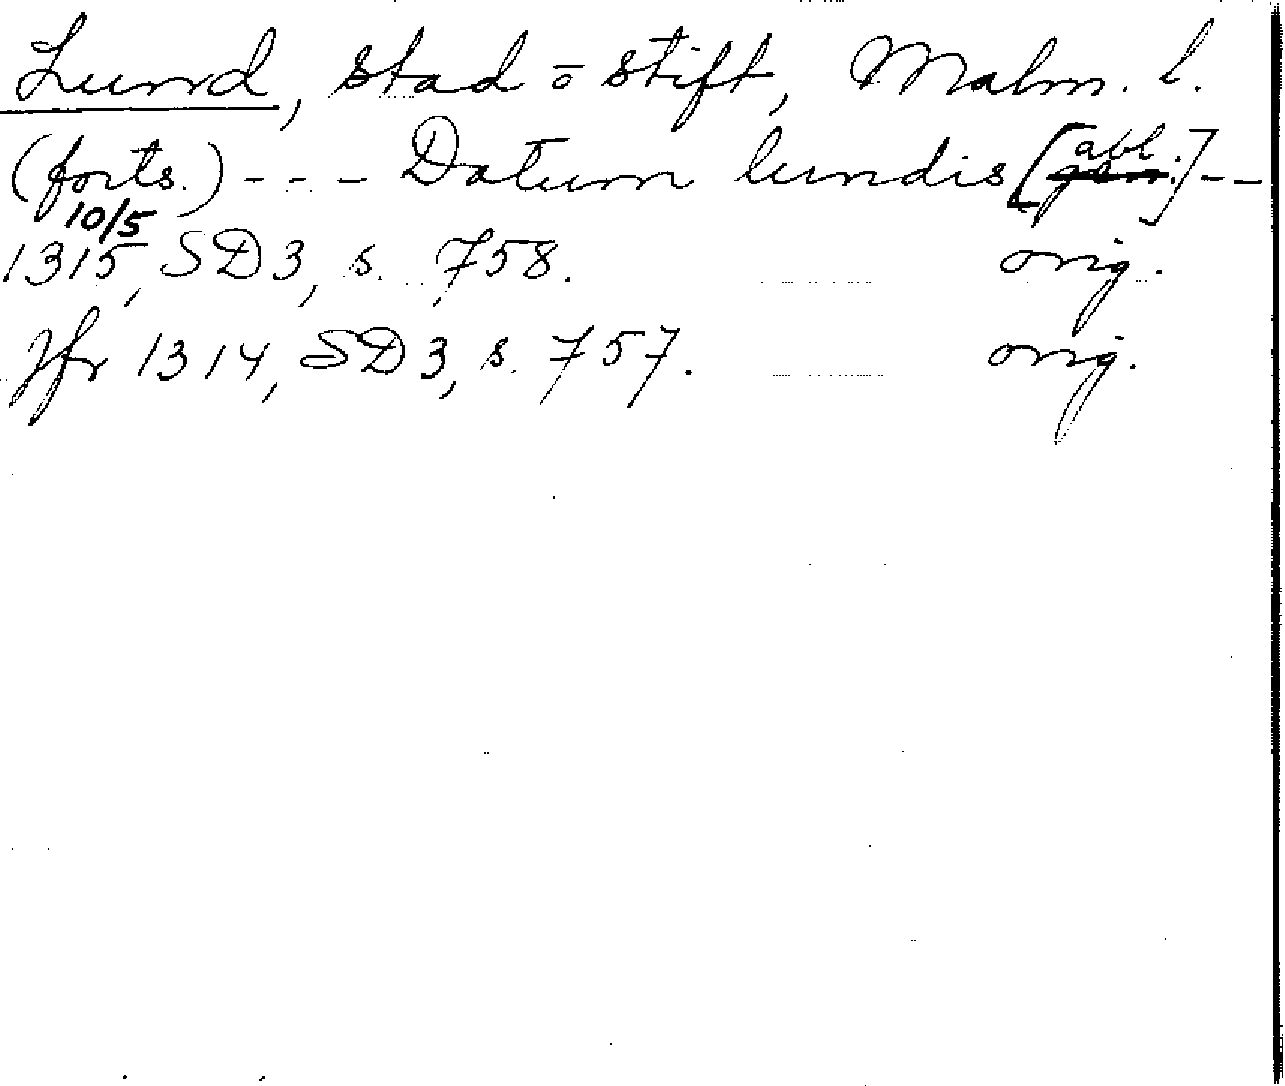 Lund, stad o stift, Malm. l.
(forts.) - - - Datum lundis [abl.] - -
10/5
1315, SD3, s. 758. orig.
Jfr 1314, SD3, s. 757. orig.